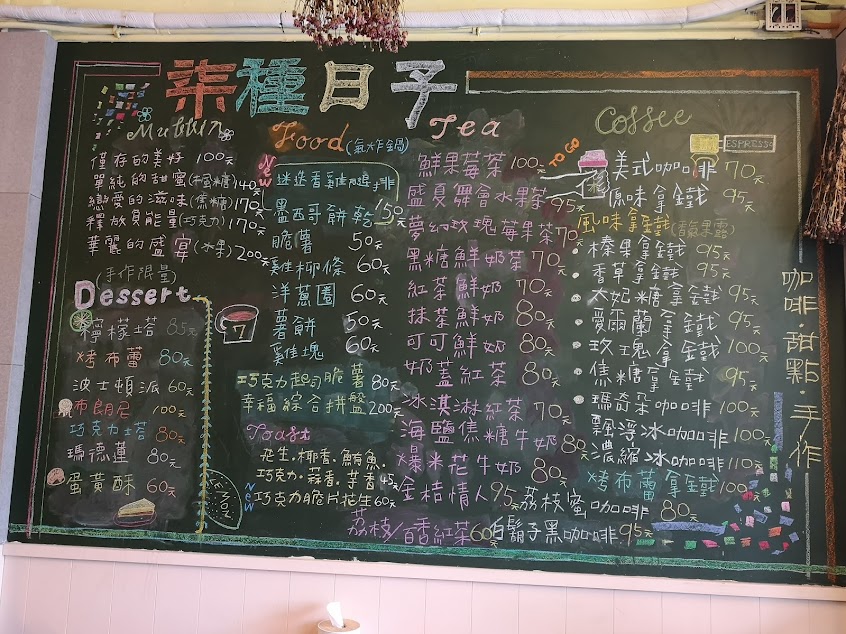 柒種日子
Muffin
僅存的美好 100元
單純的甜蜜(楓糖) 140元
戀愛的滋味(焦糖) 170元
釋放負能量(巧克力) 170元
華麗的盛宴(水果) 200元
(手作限量)
Dessert
檸檬塔 85元
烤布蕾 80元
波士頓派 60元
布朗尼 100元
巧克力塔 80元
瑪德蓮 80元
蛋黃酥 60元
7
LEMON
Food(氣炸鍋)
New
迷迭香雞腿排
墨西哥餅乾 150元
脆薯 50元
雞柳條 60元
洋蔥圈 60元
薯餅 50元
雞塊 60元
巧克力起司脆薯 80元
幸福綜合拼盤 200元
Toast
花生.椰香.鮪魚.
巧克力.蒜香.芋香 45元
NEW 巧克力脆片花生 60元
Tea
鮮果莓茶 100元
盛夏舞會水果茶 95元
夢幻玫瑰莓果茶 70元
黑糖鮮奶茶 70元
紅茶鮮奶 70元
抹茶鮮奶 80元
可可鮮奶 80元
奶蓋紅茶 80元
冰淇淋紅茶 70元
海鹽焦糖牛奶 80元
爆米花牛奶 80元
金桔情人 95元
荔枝/百香紅茶 60元
TO GO
Coffee
ESPRESSO
美式咖啡 70元
原味拿鐵 95元
風味拿鐵(香氣果露)
榛果拿鐵 95元
香草拿鐵 95元
太妃糖拿鐵 95元
愛爾蘭拿鐵 95元
玫瑰拿鐵 100元
焦糖拿鐵 95元
瑪奇朵咖啡 100元
飄浮冰咖啡 110元
濃縮冰咖啡 110元
烤布蕾拿鐵 100元
荔枝蜜咖啡 80元
白鬍子黑咖啡 95元
咖啡·甜點·手作